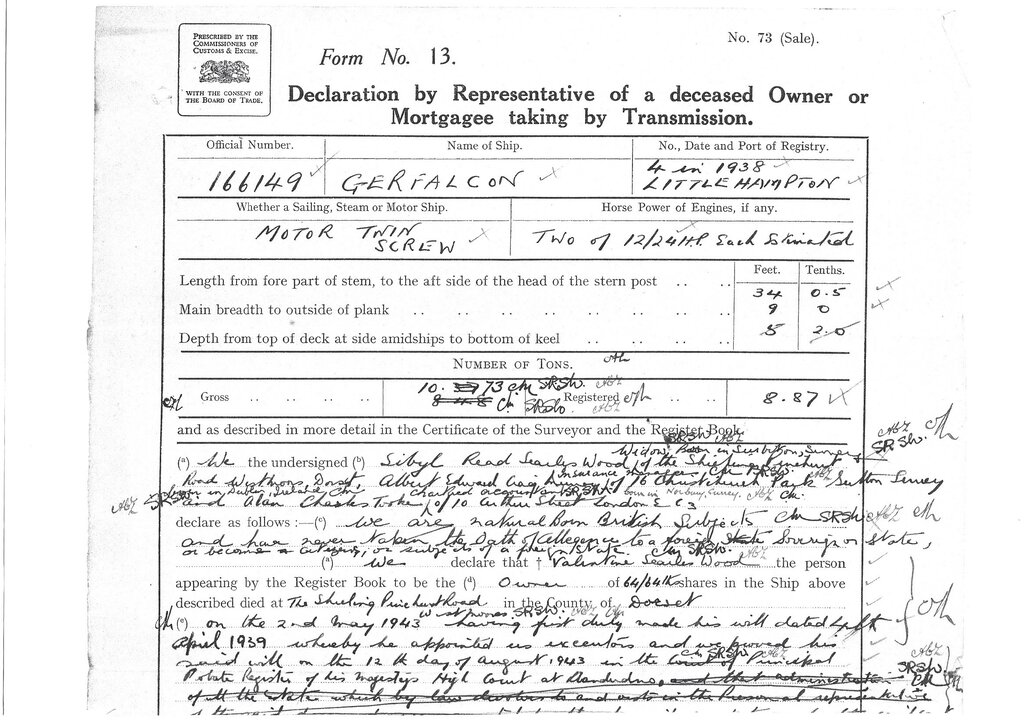 PRESCRIBED BY THE
COMMISSIONERS OF
CUSTOMS & EXCISE.
WITH THE CONSENT OF
THE BOARD OF TRADE.
No. 73 (Sale).
Form No. 13.
Declaration by Representative of a deceased Owner or
Mortgagee taking by Transmission.
Official Number. Name of Ship. No., Date and Port of Registry.
166149 GERFALCON 4 in 1938
LITTLE HAMPTON
Whether a Sailing, Steam or Motor Ship. Horse Power of Engines, if any.
MOTOR TWIN
SCREW
TWO of 12/24 H.P. Each Estimated
Feet. Tenths.
Length from fore part of stem, to the aft side of the head of the stern post .. .. 34 0.5
Main breadth to outside of plank .. .. .. .. .. .. .. 9 0
Depth from top of deck at side amidships to bottom of keel .. .. .. .. 5 2.0
NUMBER OF TONS.
Gross .. .. .. .. 10. 73 Cm SRSW. Registered .. .. 8.87
and as described in more detail in the Certificate of the Surveyor and the Register Book.
Widow, Born in Surbiton Surrey
(a) We the undersigned (b) Sibyl Read Searles Wood of the Shieling Pinehurst
Insurance manager
Road Westmoors, Dorset, Albert Edward of 16 Christchurch Park Sutton Surrey
born in Dublin, Ireland chartered accountant SRSW. born in Norbury, Surrey.
and Alan Charles Tooke of 10 Arthur Street London E C 3
declare as follows :—(c) We are natural Born British Subjects Cm SRSW
and have never taken the Oath of Allegence to a foreign State Soverign or State,
or become a citizen, or subjects of a foreign State. Cm SRSW.
(a) We declare that † Valentine Searles Wood the person
appearing by the Register Book to be the (d) Owner of 64/64th shares in the Ship above
described died at The Shieling Pinehurst Road in the County of Dorset
Westmoors. SRSW.
(e) on the 2nd May 1943 having first duly made his will dated
April 1939 whereby he appointed us executors and we proved his
said will on the 12th day of August 1943 in the Principal
Probate Register of his Majestys High Court at Llandudno, and that administration
of all the estate which by law devolves to and vests in the Personal representative